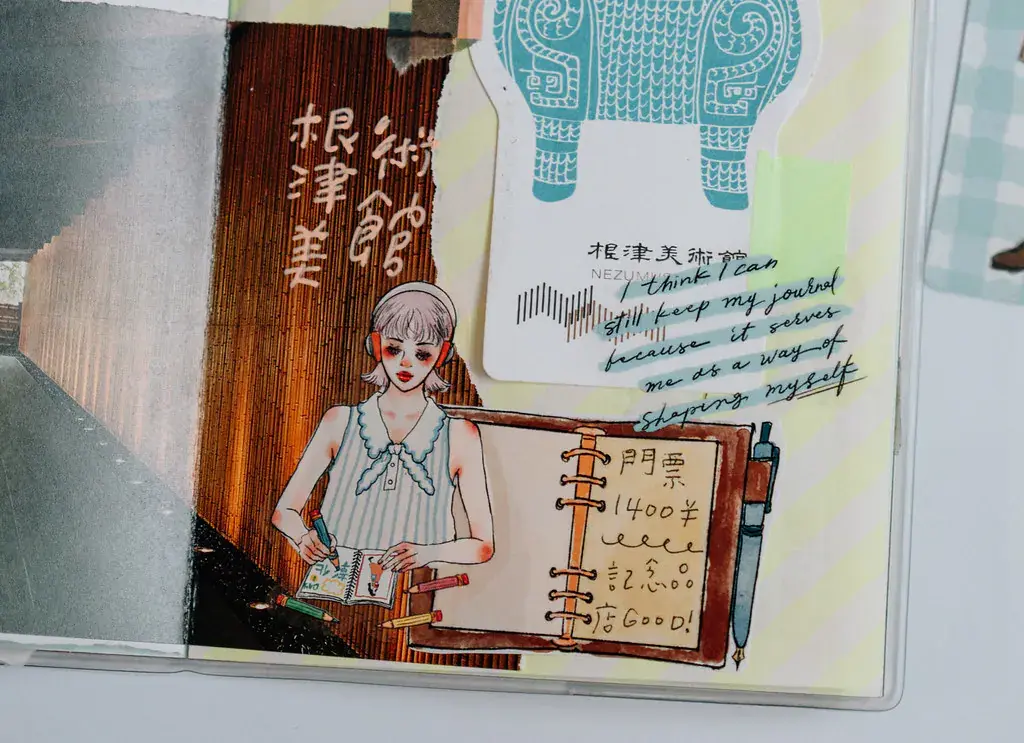 根津美
術館
根津美術館
NEZUMU
I think I can
still keep my journal
because it serves
me as a way of
shaping myself
門票
1400¥
記念品
店GOOD!